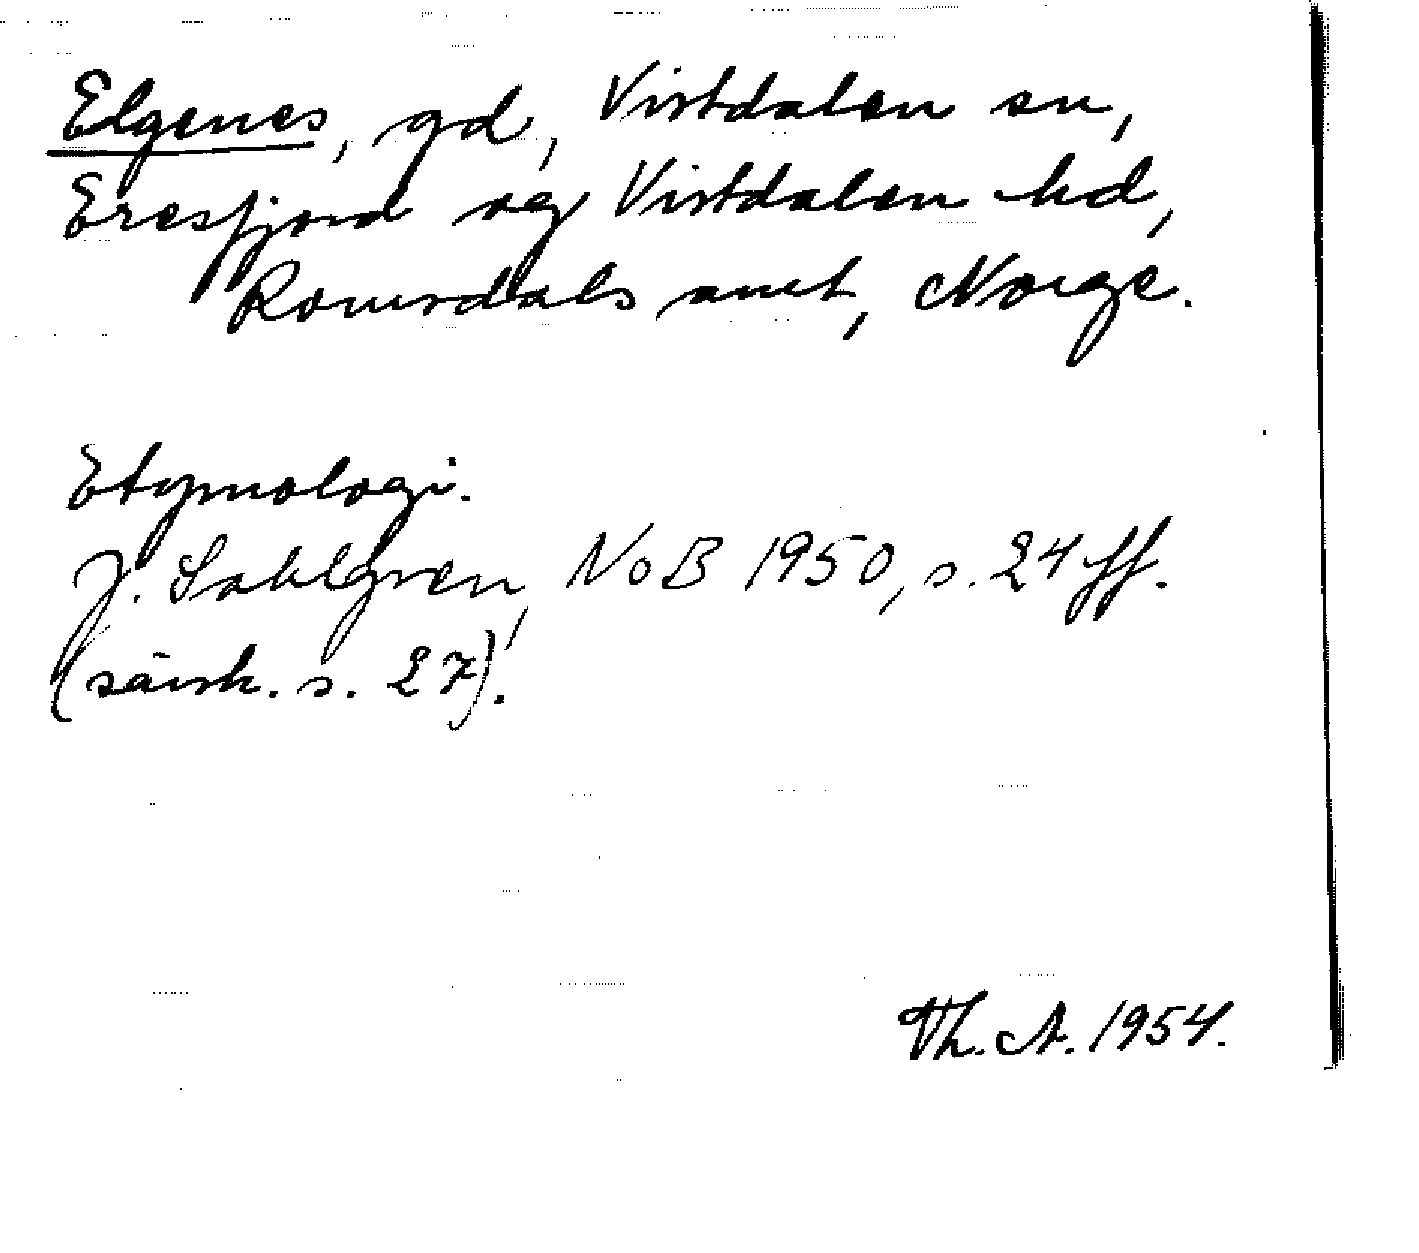 Elgenes, gd, Vistdalen sn,
Eresfjord og Vistdalen hd,
Romsdals amt, Norge.
Etymologi.
J. Sahlgren, NoB 1950, s. 24 ff.
(särsk. s. 27).
Th. A. 1954.